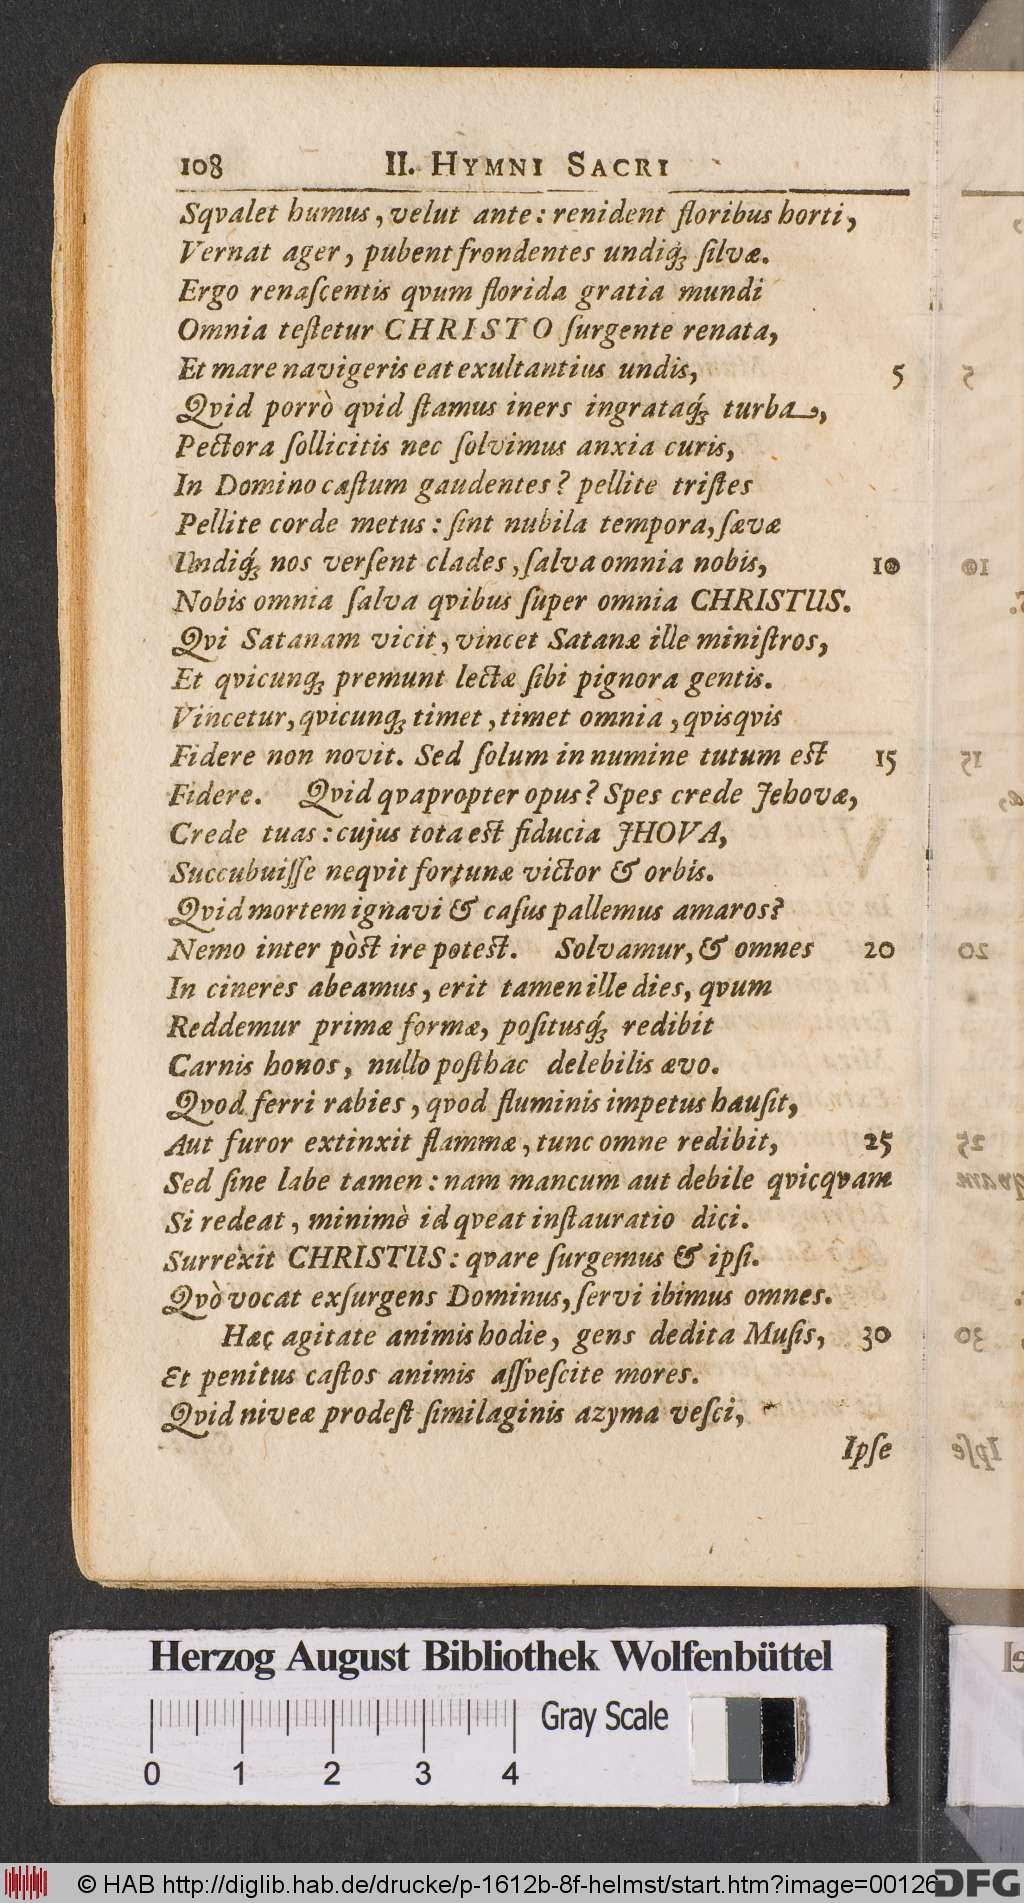 108 II. HYMNI SACRI
Sqvalet humus, velut ante: renident floribus horti,
Vernat ager, pubent frondentes undiq́ꝫ ſilvæ.
Ergo renaſcentis qvum florida gratia mundi
Omnia teſtetur CHRISTO ſurgente renata,
Et mare navigeris eat exultantius undis, 5
Qvid porrò qvid ſtamus iners ingrataq́ꝫ turba,
Pectora ſollicitis nec ſolvimus anxia curis,
In Domino caſtum gaudentes? pellite triſtes
Pellite corde metus: ſint nubila tempora, ſævæ
Undiq́ꝫ nos verſent clades, ſalva omnia nobis, 10
Nobis omnia ſalva qvibus ſuper omnia CHRISTUS.
Qvi Satanam vicit, vincet Satanæ ille miniſtros,
Et qvicunqꝫ premunt lectæ ſibi pignora gentis.
Vincetur, qvicunqꝫ timet, timet omnia, qvisqvis
Fidere non novit. Sed ſolum in numine tutum est 15
Fidere. Qvid qvapropter opus? Spes crede Jehovæ,
Crede tuas: cujus tota est fiducia JHOVA,
Succubuiſſe neqvit fortunæ victor & orbis.
Qvid mortem ignavi & caſus pallemus amaros?
Nemo inter pòst ire potest. Solvamur, & omnes 20
In cineres abeamus, erit tamen ille dies, qvum
Reddemur primæ formæ, poſitusq́ꝫ redibit
Carnis honos, nullo poſthac delebilis ævo.
Qvod ferri rabies, qvod fluminis impetus hauſit,
Aut furor extinxit flammæ, tunc omne redibit, 25
Sed ſine labe tamen: nam mancum aut debile qvicqvam
Si redeat, minimè id qveat inſtauratio dici.
Surrexit CHRISTUS: qvare ſurgemus & ipſi.
Qvò vocat exſurgens Dominus, ſervi ibimus omnes.
Hæc agitate animis hodie, gens dedita Muſis, 30
Et penitus caſtos animis aſſveſcite mores.
Qvid niveæ prodeſt ſimilaginis azyma veſci,
Ipſe
Herzog August Bibliothek Wolfenbüttel
Gray Scale
0 1 2 3 4
© HAB http://diglib.hab.de/drucke/p-1612b-8f-helmst/start.htm?image=00126
DFG